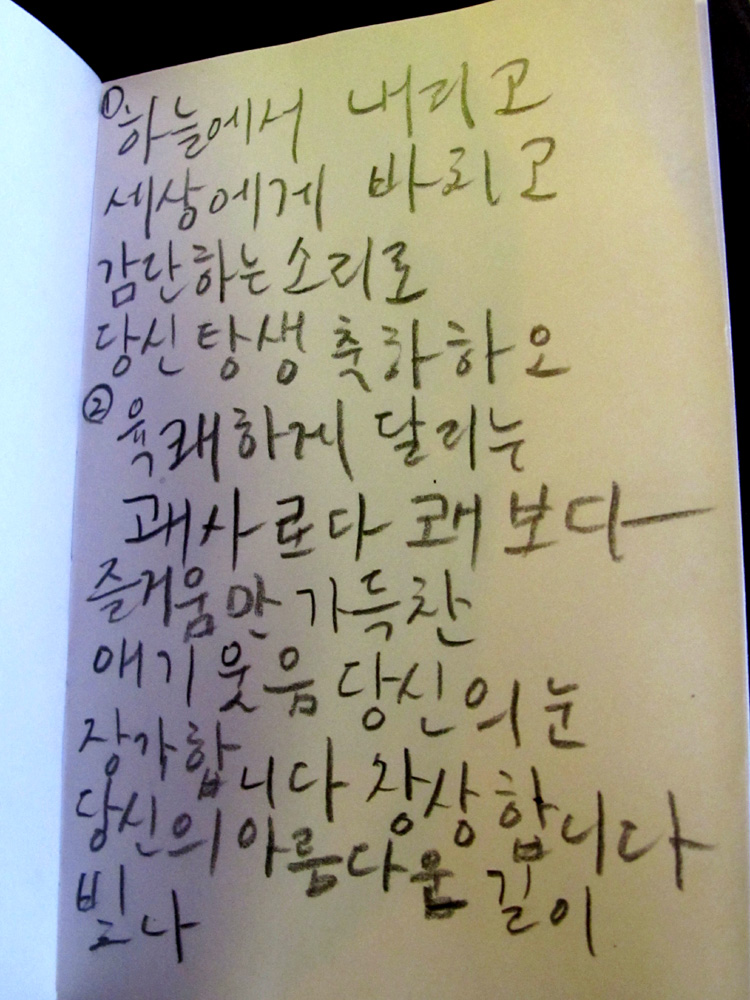 ① 하늘에서 내리고
세상에게 바리고
감단하는 소리로
당신 탕생 축하하오
② 육쾌하게 달리누
괘사료다 쾌보다
즐거움만 가득찬
애기 웃음 당신의 눈
장가합니다 장상합니다
당신의 아름다운 길이
빛나